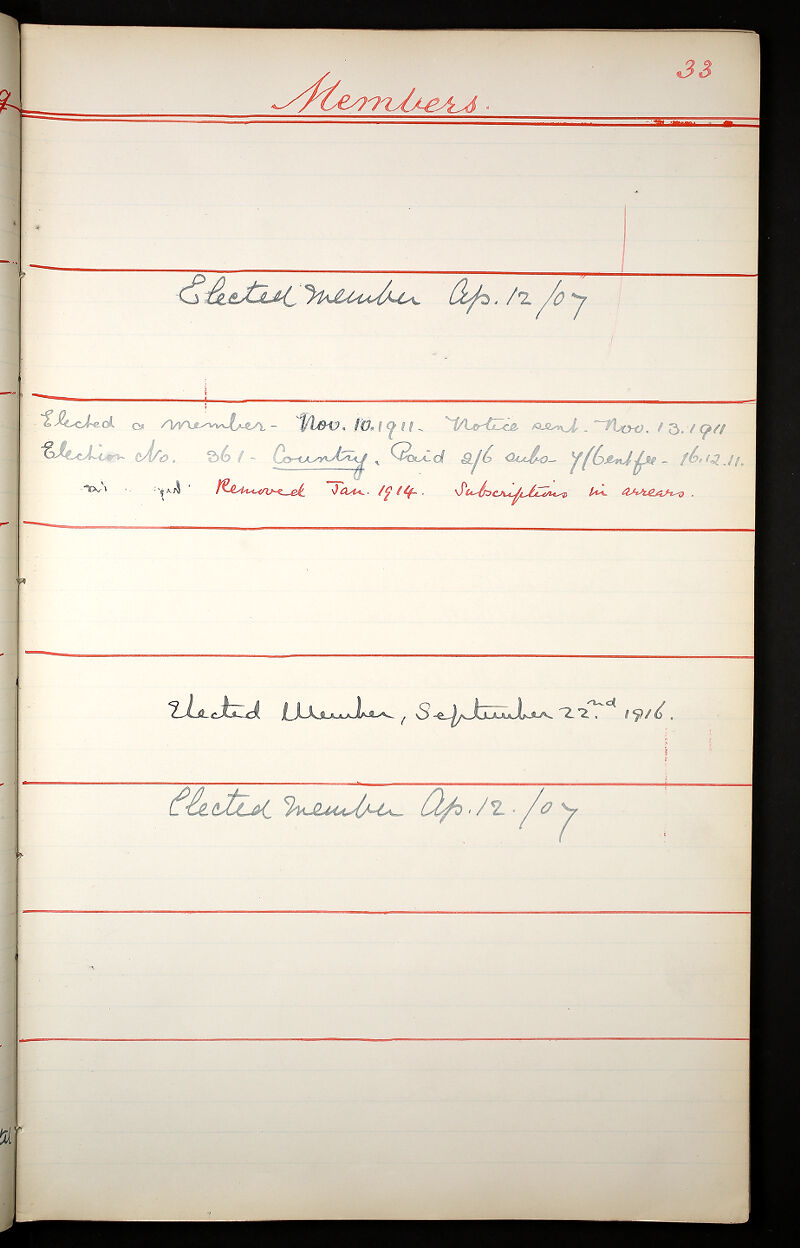 33
Members.
Elected member Ap. 12/07
Elected a member - Nov. 10. 1911 - Notice sent - Nov. 13. 1911
Election No. 361 - Country. Paid 2/6 subs 7/6 ent fee - 16.12.11.
Removed Jan. 1914. Subscriptions in arrears.
Elected Member, September 22.nd 1916.
Elected member Ap. 12./07